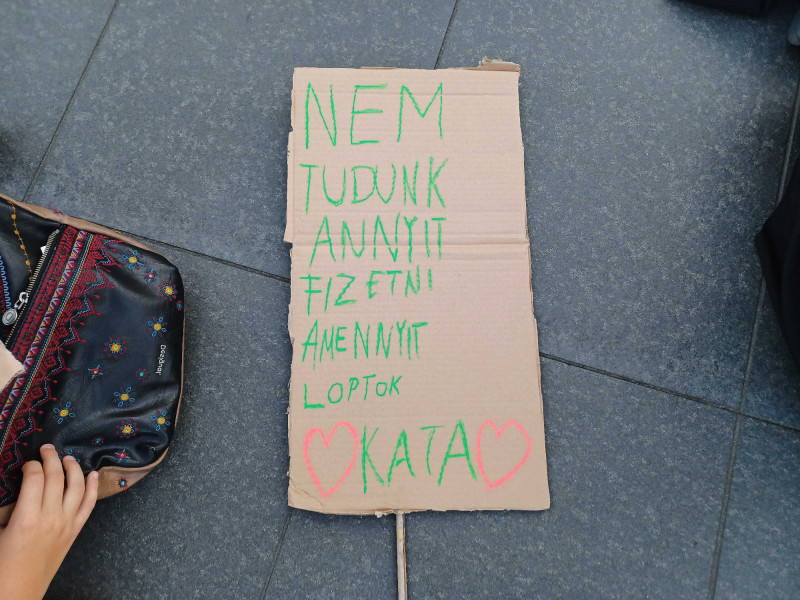 NEM
TUDUNK
ANNYIT
FIZETNI
AMENNYIT
LOPTOK
♡KATA♡
Desigual